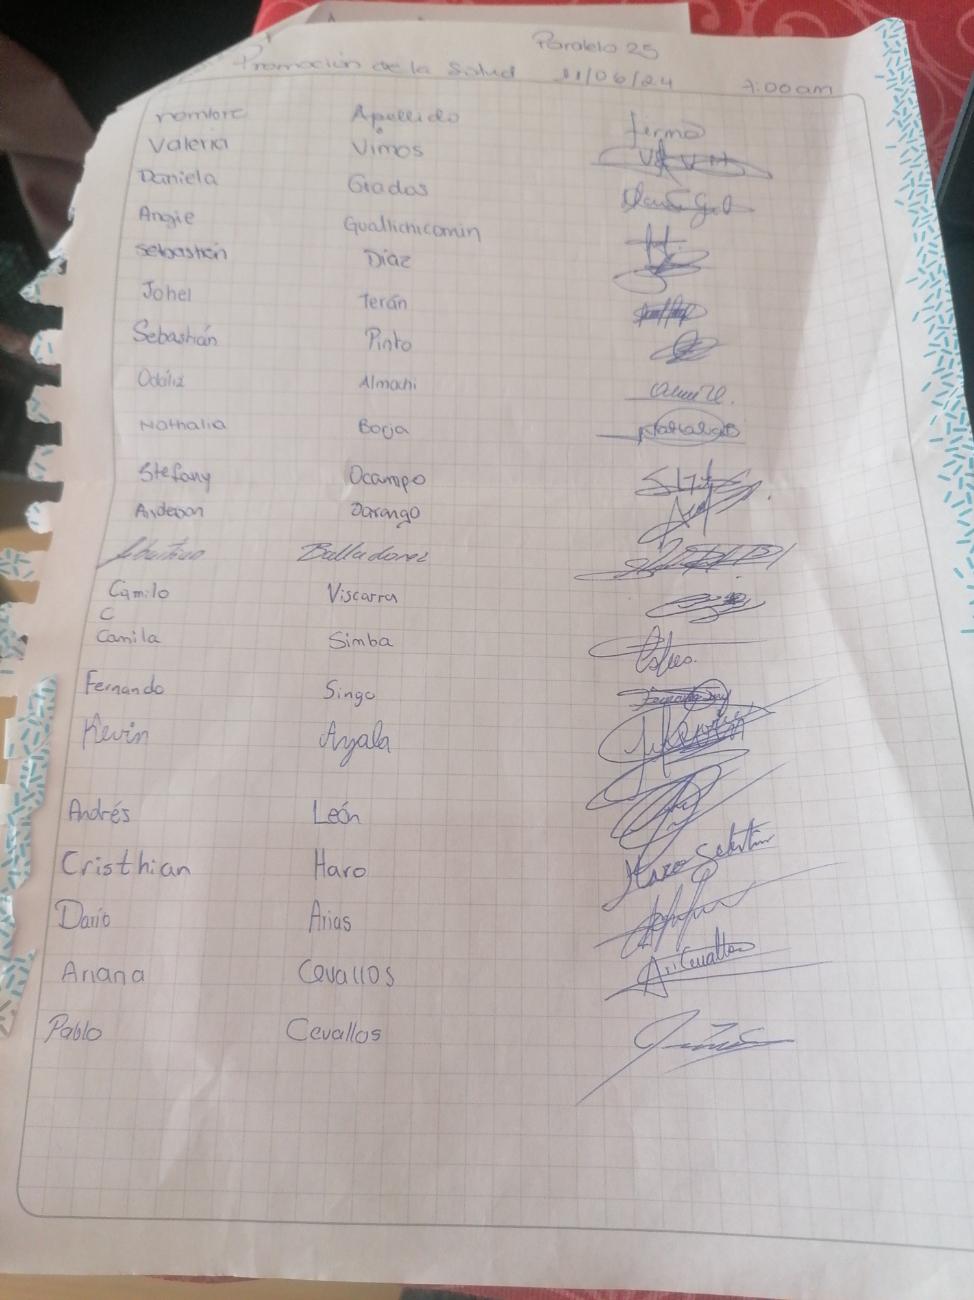 Paralelo 25
Promoción de la Salud 11/06/24 7:00am
nombre Apellido firma
Valeria Vimos
Daniela Grados
Angie Guallichicomin
Sebastián Díaz
Johel Terán
Sebastián Pinto
Odáliz Almachi
Nathalia Borja
Stefany Ocampo
Anderson Darango
Balladares
Camilo Viscarra
C
Camila Simba
Fernando Singo
Kevin Ayala
Andrés León
Cristhian Haro Haro Sebastian
Darío Arias
Ariana Cevallos Ari Cevallos
Pablo Cevallos